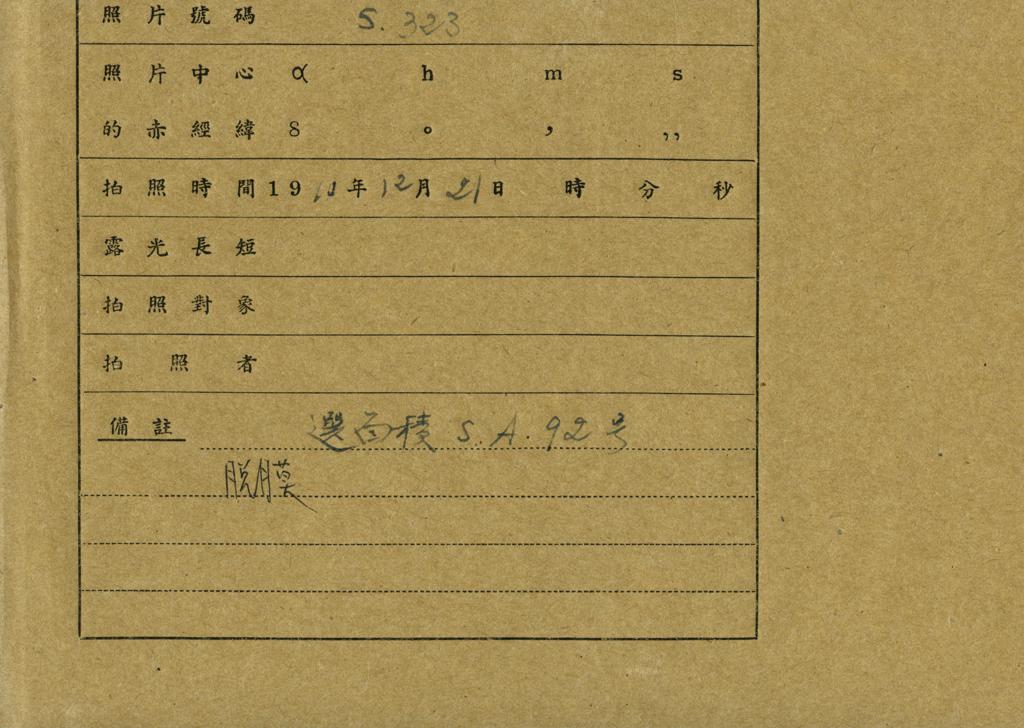 照片號碼 S. 323
照片中心 α h m s
的赤經緯 δ ° ′ ″
拍照時間 19 年 12月 21日 時 分 秒
露光長短
拍照對象
拍照者
備註 選面積 S.A. 92号
脱膜